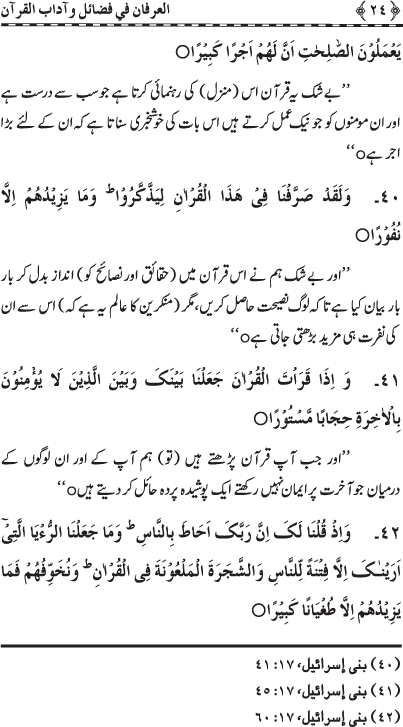 ﴿۲۴﴾ العرفان في فضائل و آداب القرآن
يَعْمَلُوْنَ الصّٰلِحٰتِ اَنَّ لَهُمْ اَجْرًا كَبِيْرًا○
’’بے شک یہ قرآن اس (منزل) کی رہنمائی کرتا ہے جو سب سے درست ہے
اور ان مومنوں کو جو نیک عمل کرتے ہیں اس بات کی خوشخبری سناتا ہے کہ ان کے لئے بڑا
اجر ہے○‘‘
۴۰۔ وَلَقَدْ صَرَّفْنَا فِیْ هٰذَا الْقُرْاٰنِ لِيَذَّكَّرُوْا ط وَمَا يَزِيْدُهُمْ اِلَّا
نُفُوْرًا○
’’اور بے شک ہم نے اس قرآن میں (حقائق اور نصائح کو) انداز بدل کر بار
بار بیان کیا ہے تاکہ لوگ نصیحت حاصل کریں، مگر (منکرین کا عالم یہ ہے کہ) اس سے ان
کی نفرت ہی مزید بڑھتی جاتی ہے○‘‘
۴۱۔ وَ اِذَا قَرَاْتَ الْقُرْاٰنَ جَعَلْنَا بَيْنَکَ وَبَيْنَ الَّذِيْنَ لَا يُؤْمِنُوْنَ
بِالْاٰخِرَةِ حِجَابًا مَّسْتُوْرًا○
’’اور جب آپ قرآن پڑھتے ہیں (تو) ہم آپ کے اور ان لوگوں کے
درمیان جو آخرت پر ایمان نہیں رکھتے ایک پوشیدہ پردہ حائل کر دیتے ہیں○‘‘
۴۲۔ وَاِذْ قُلْنَا لَکَ اِنَّ رَبَّکَ اَحَاطَ بِالنَّاسِ ط وَمَا جَعَلْنَا الرُّءْيَا الَّتِیْٓ
اَرَيْنٰکَ اِلَّا فِتْنَةً لِّلنَّاسِ وَالشَّجَرَةَ الْمَلْعُوْنَةَ فِی الْقُرْاٰنِ ط وَنُخَوِّفُهُمْ فَمَا
يَزِيْدُهُمْ اِلَّا طُغْيَانًا كَبِيْرًا○
(۴۰) بنی إسرائيل، ۱۷: ۴۱
(۴۱) بنی إسرائيل، ۱۷: ۴۵
(۴۲) بنی إسرائيل، ۱۷: ۶۰